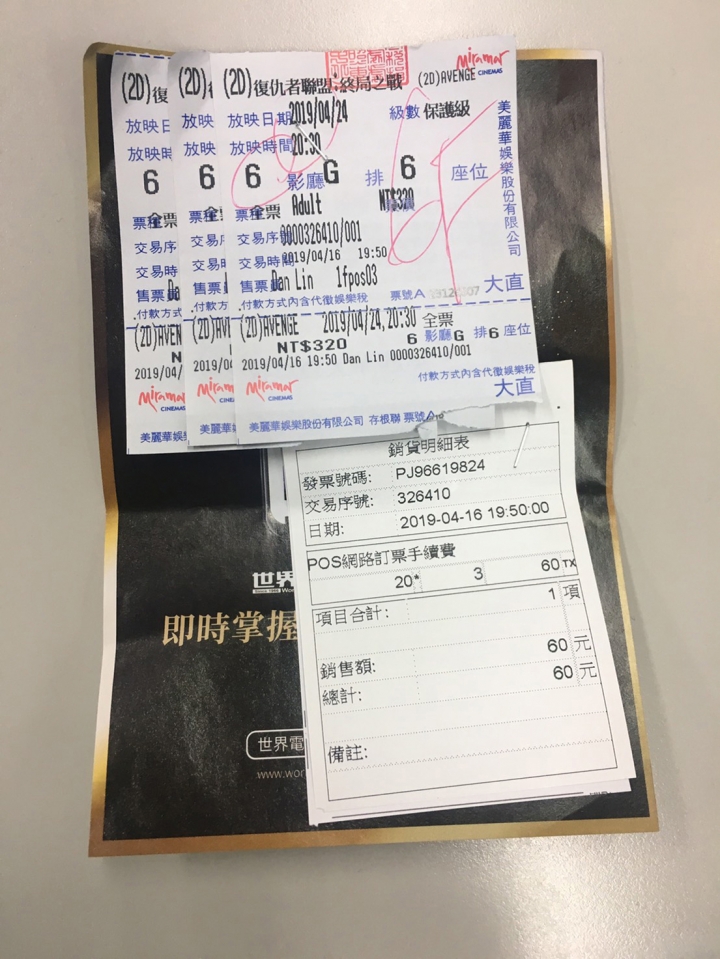 (2D)復
放映日
放映時
6
票種全票
交易序
交易時
售票員
Da
付款方式內含代徵
(2D)AVEN
N
2019/04/
Miram
CINEMAS
美麗華娛
(2D)
放映
放映
6
票種全
交易序
交易時
售票
付款方式
(2D)AV
2019/04
Miram
CINEM
美麗華
(2D)復仇者聯盟:終局之戰
(2D)AVENGE
Miramar
CINEMAS
放映日期 2019/04/24
級數 保護級
放映時間 20:30
6 影廳 G 排 6 座位
票種全票 Adult NT$320
交易序 0000326410/001
交易時間 2019/04/16 19:50
售票員 Dan Lin 1fpos03
票號A
付款方式內含代徵娛樂稅
大直
美麗華娛樂股份有限公司
6F
(2D)AVENGE 2019/04/24,20:30 全票
NT$320 6 影廳G 排6 座位
2019/04/16 19:50 Dan Lin 0000326410/001
Miramar
CINEMAS
付款方式內含代徵娛樂稅
大直
美麗華娛樂股份有限公司 存根聯 票號A
銷貨明細表
發票號碼: PJ96619824
交易序號: 326410
日期: 2019-04-16 19:50:00
POS網路訂票手續費
20* 3 60TX
項目合計: 1 項
銷售額: 60 元
總計: 60 元
備註:
世界
Since 1989
即時掌握
世界電
www.wor